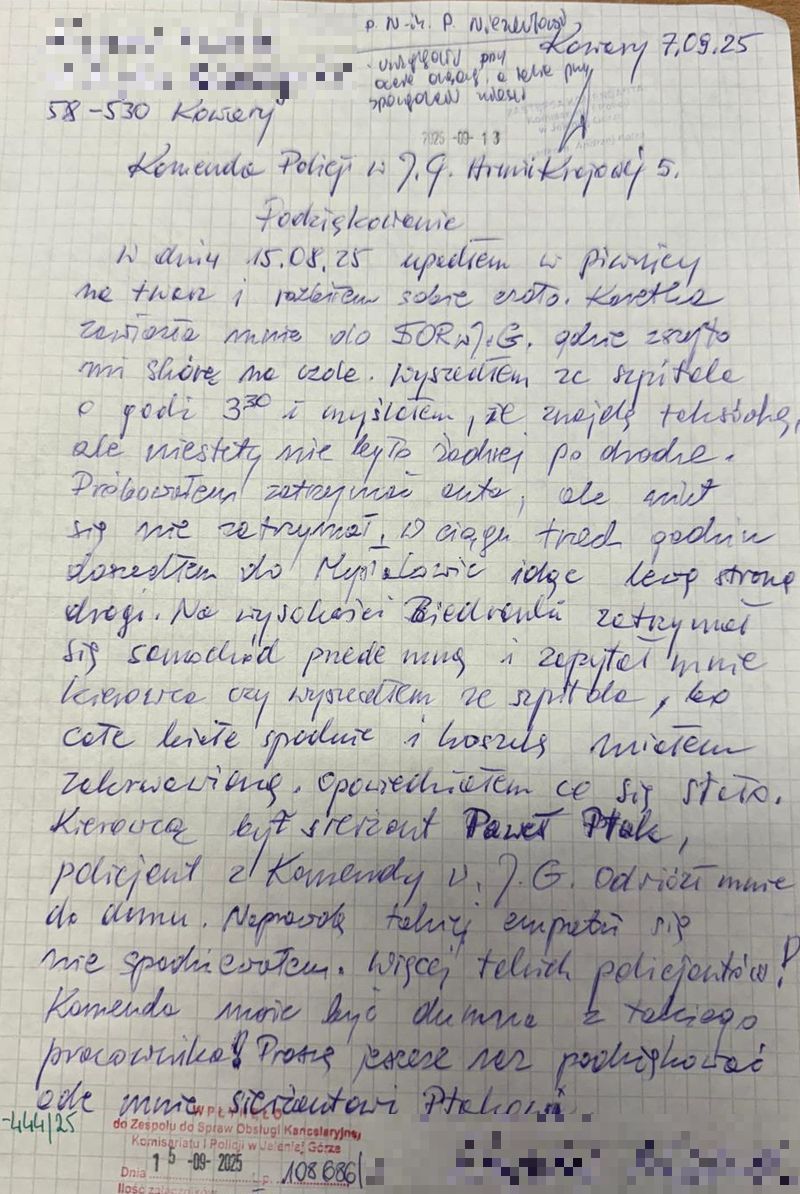 p. N-ik P.
Kowary 7.09.25
uwzględnić przy
ocenie a także przy
58-530 Kowary
2025 -09- 13
Komenda Policji w J.G. Armii Krajowej 5.
Podziękowanie
W dniu 15.08.25 upadłem w piwnicy
na twarz i rozbiłem sobie czoło. Karetka
zawiozła mnie do SOR w J.G. gdzie zszyto
mi skórę na czole. Wyszedłem ze szpitala
o godz 3³⁰ i myślałem, że znajdę taksówkę,
ale niestety nie było żadnej po drodze.
Próbowałem zatrzymać auta, ale nikt
się nie zatrzymał. W ciągu trzech godzin
doszedłem do Mysłakowic idąc lewą stroną
drogi. Na wysokości Biedronki zatrzymał
się samochód przede mną i zapytał mnie
kierowca czy wyszedłem ze szpitala, bo
całe białe spodnie i koszulę miałem
zakrwawioną. Opowiedziałem co się stało.
Kierowcą był sierżant Paweł Ptak,
policjant z Komendy w J.G. Odwiózł mnie
do domu. Naprawdę takiej empatii się
nie spodziewałem. Więcej takich policjantów!
Komenda może być dumna z takiego
pracownika! Proszę jeszcze raz podziękować
ode mnie sierżantowi Ptakowi.
-444/25
WPŁYNĘŁO
do Zespołu do Spraw Obsługi Kancelaryjnej
Komisariatu I Policji w Jeleniej Górze
Dnia 15 -09- 2025 L.p. 108686
Ilość załączników